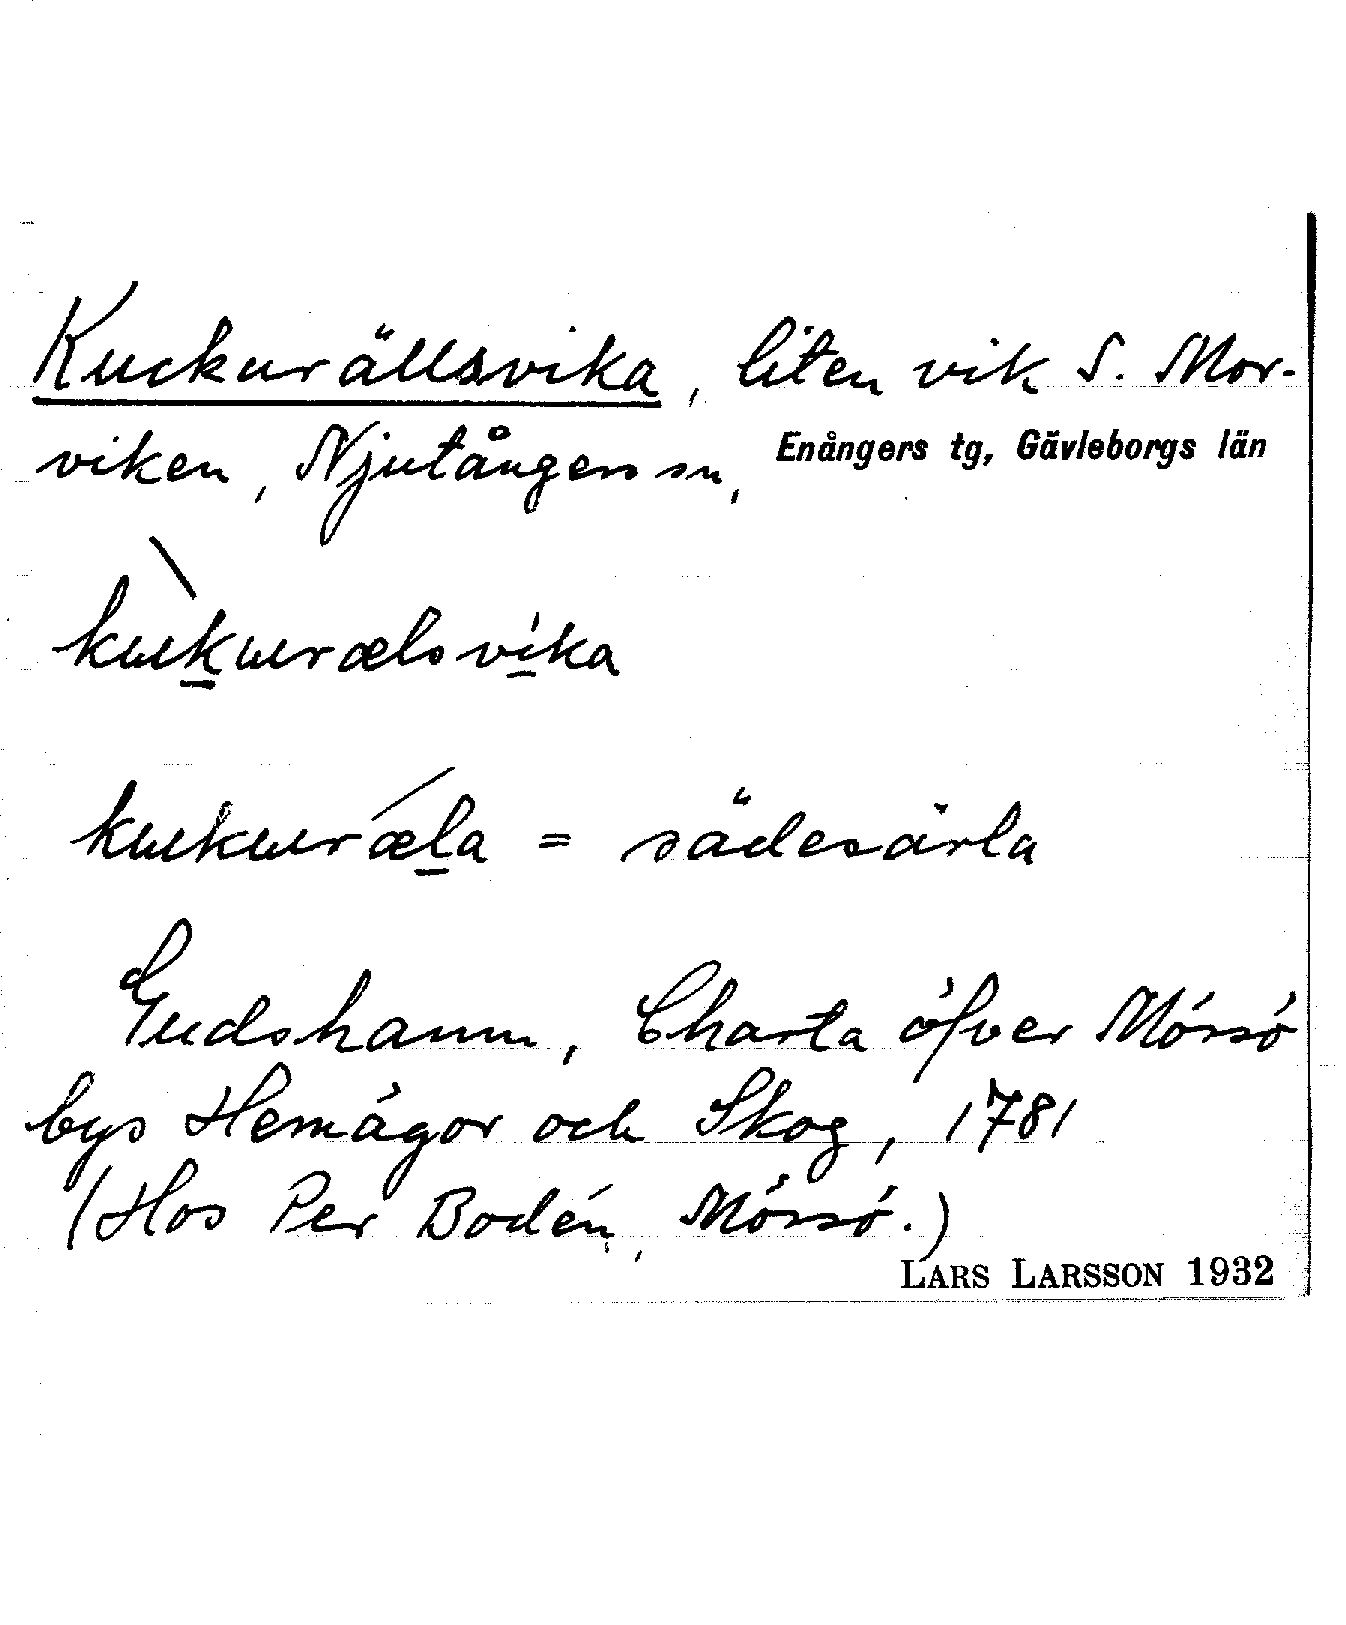 Kuckurällsvika, liten vik S. Mor-
viken, Njutångers sn, Enångers tg, Gävleborgs län
kɯkɯrælsvika
kɯkɯræla = sädesärla
Gudshamn, Charta öfver Mössö
bys Hemägor och Skog, 1781
(Hos Per Bodén, Mössö.)
LARS LARSSON 1932